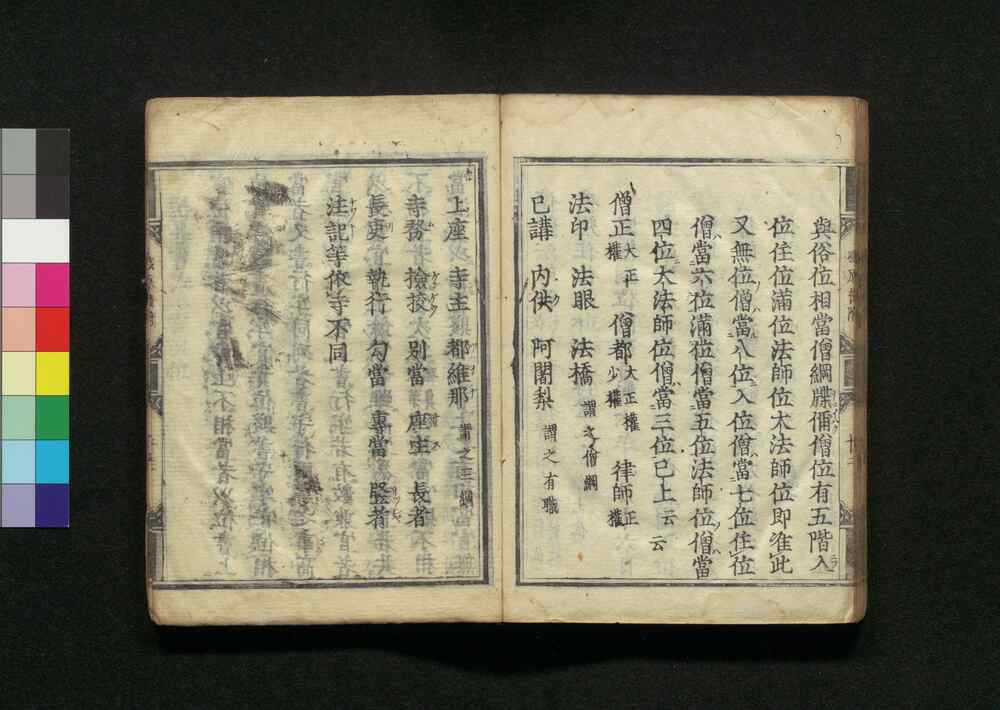 與俗位相當僧綱牒偁僧位有五階入
位住位滿位法師位大法師位即准此
又無位僧當八位入位僧當七位住位
僧當六位滿位僧當五位法師位僧當
四位大法師位僧當三位已上云云
僧正大正權 僧都大正權少權 律師正權
法印 法眼 法橋謂之僧綱
已講 内供 阿闍梨謂之有職
上座 寺主 都維那謂之三綱
寺務 撿挍 別當 座主 長者
長吏 執行 勾當 專當 竪者
注記等依寺不同